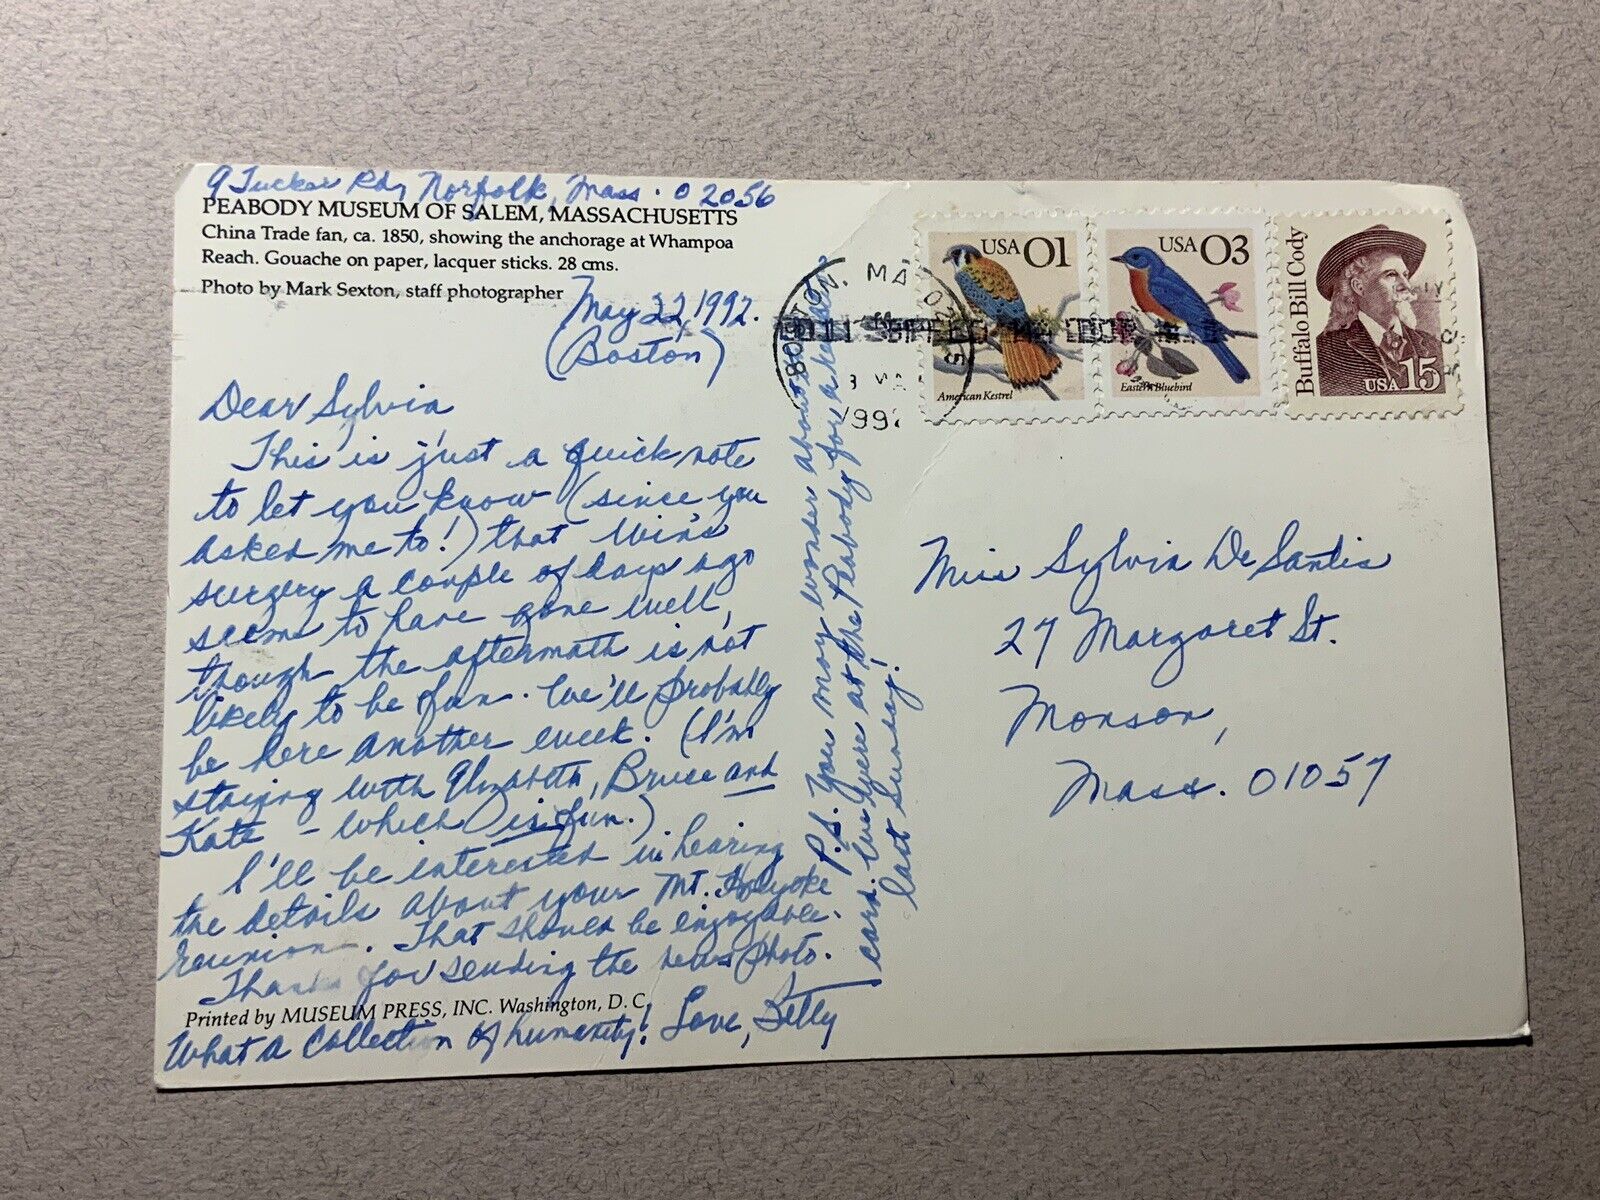 9 Tucker Rd, Norfolk, Mass. 02056
PEABODY MUSEUM OF SALEM, MASSACHUSETTS
China Trade fan, ca. 1850, showing the anchorage at Whampoa
Reach. Gouache on paper, lacquer sticks. 28 cms.
Photo by Mark Sexton, staff photographer
May 22, 1992.
(Boston)
Dear Sylvia
This is just a quick note
to let you know (since you
asked me to!) that Win's
surgery a couple of days ago
seems to have gone well,
though the aftermath is not
likely to be fun. We'll probably
be here another week. (I'm
staying with Elizabeth, Bruce and
Kate - which is fun.)
I'll be interested in hearing
the details about your Mt. Holyoke
reunion. That should be enjoyable.
Thanks for sending the news photo.
Printed by MUSEUM PRESS, INC. Washington, D.C.
What a collection of humanity! Love, Betty
P.S. You may wonder about
card. We were at the Peabody for a
last Sunday!
BOSTON, MA
199
USA 01
American Kestrel
USA 03
Eastern Bluebird
Buffalo Bill Cody
USA 15
Miss Sylvia De Santis
27 Margaret St.
Monson,
Mass. 01057